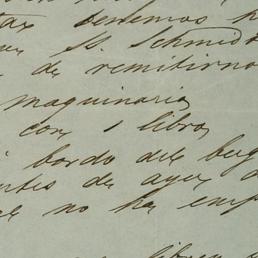 tenemos
Schmidt
de remitirno
maquinaria
con 1 libro
bordo del berg
antes de ayer
no ha emp